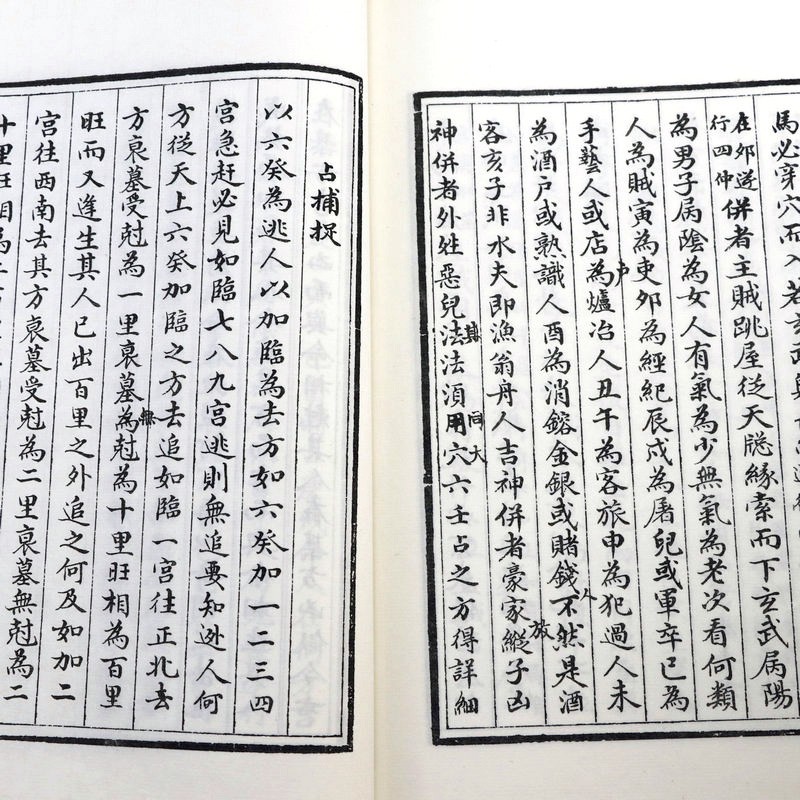 馬必穿穴而入若玄武與
在郊遊
行四仲
併者主賊跳屋從天牕緣索而下玄武属陽
為男子属陰為女人有氣為少無氣為老次看何類
人為賊寅為吏夘為經紀辰戌為屠兒或軍卒巳為
户
手藝人或店為爐冶人丑午為客旅申為犯過人未
人
為酒户或熟識人酉為消鎔金銀或賭錢不然是酒
放
客亥子非水夫即漁翁舟人吉神併者豪家縱子凶
其 同大
神併者外姓惡兒法法湏用穴六壬占之方得詳細
占捕捉
以六癸為逃人以加臨為去方如六癸加一二三四
宮急赶必見如臨七八九宮逃則無追要知逃人何
方從天上六癸加臨之方去追如臨一宮往正北去
無
方衰墓受尅為一里衰墓為尅為十里旺相為百里
旺而又逢生其人已出百里之外追之何及如加二
宮往西南去其方衰墓受尅為二里衰墓無尅為二
十里旺相為二百